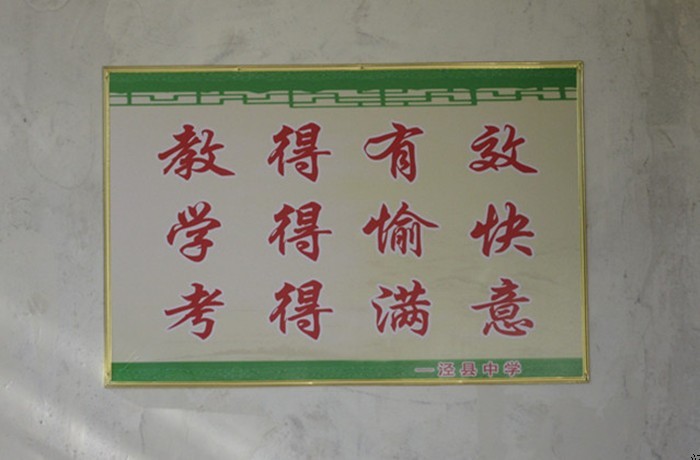 教得有效
学得愉快
考得满意
—泾县中学